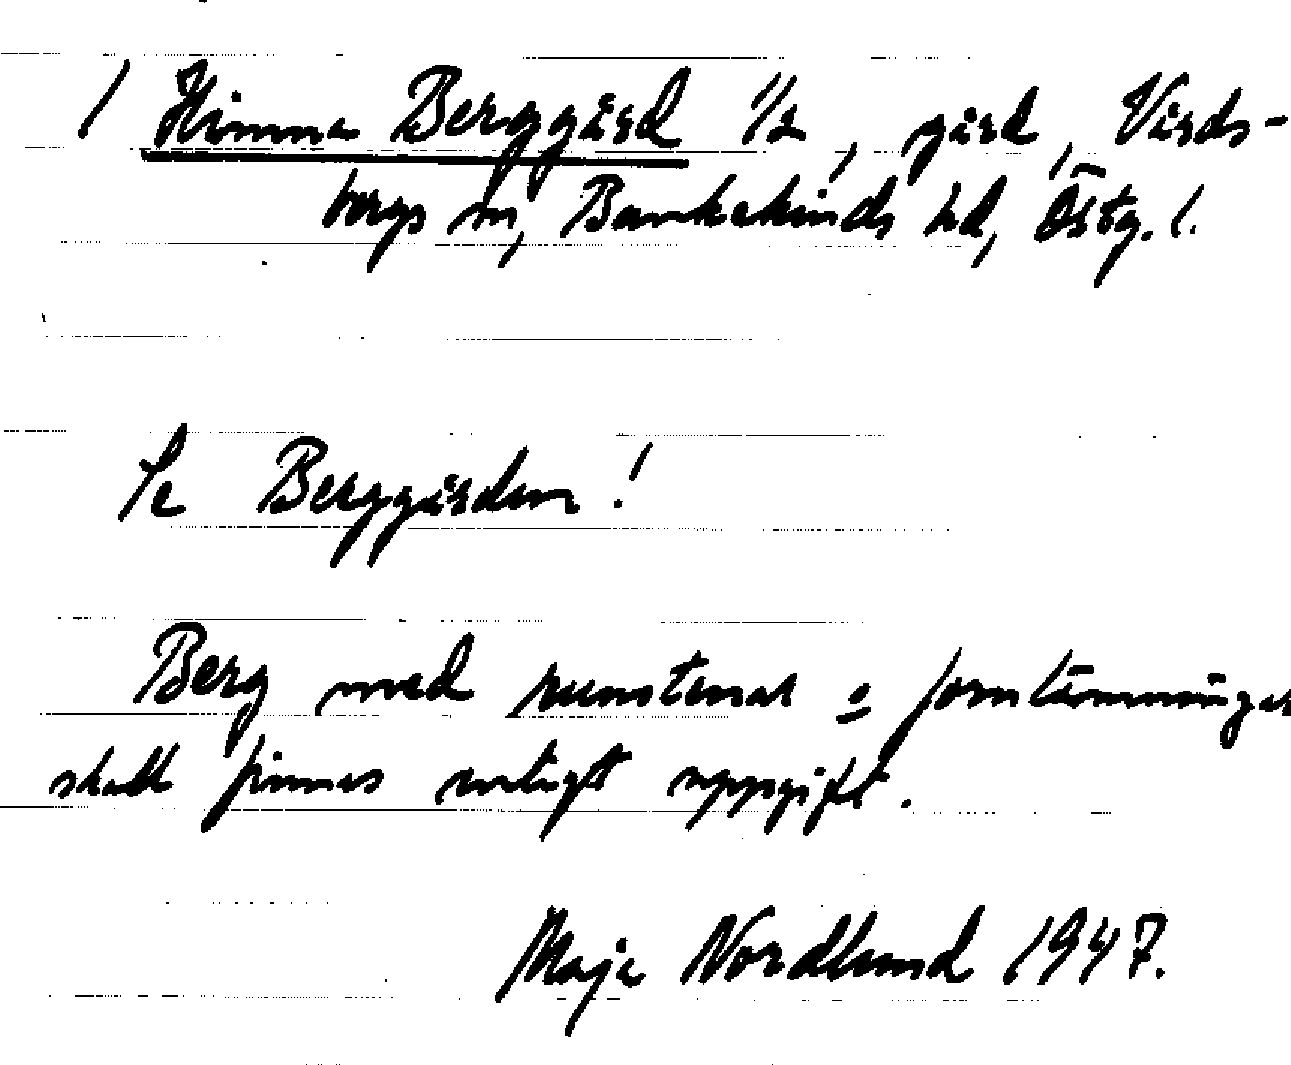 / Himna Berggård 1/2, gård, Vårds-
bergs sn, Bankekinds hd, Östg. l.
Se Berggården!
Berg med runstenar o fornlämningar
skall finnas enligt uppgift.
Maja Nordlund 1947.